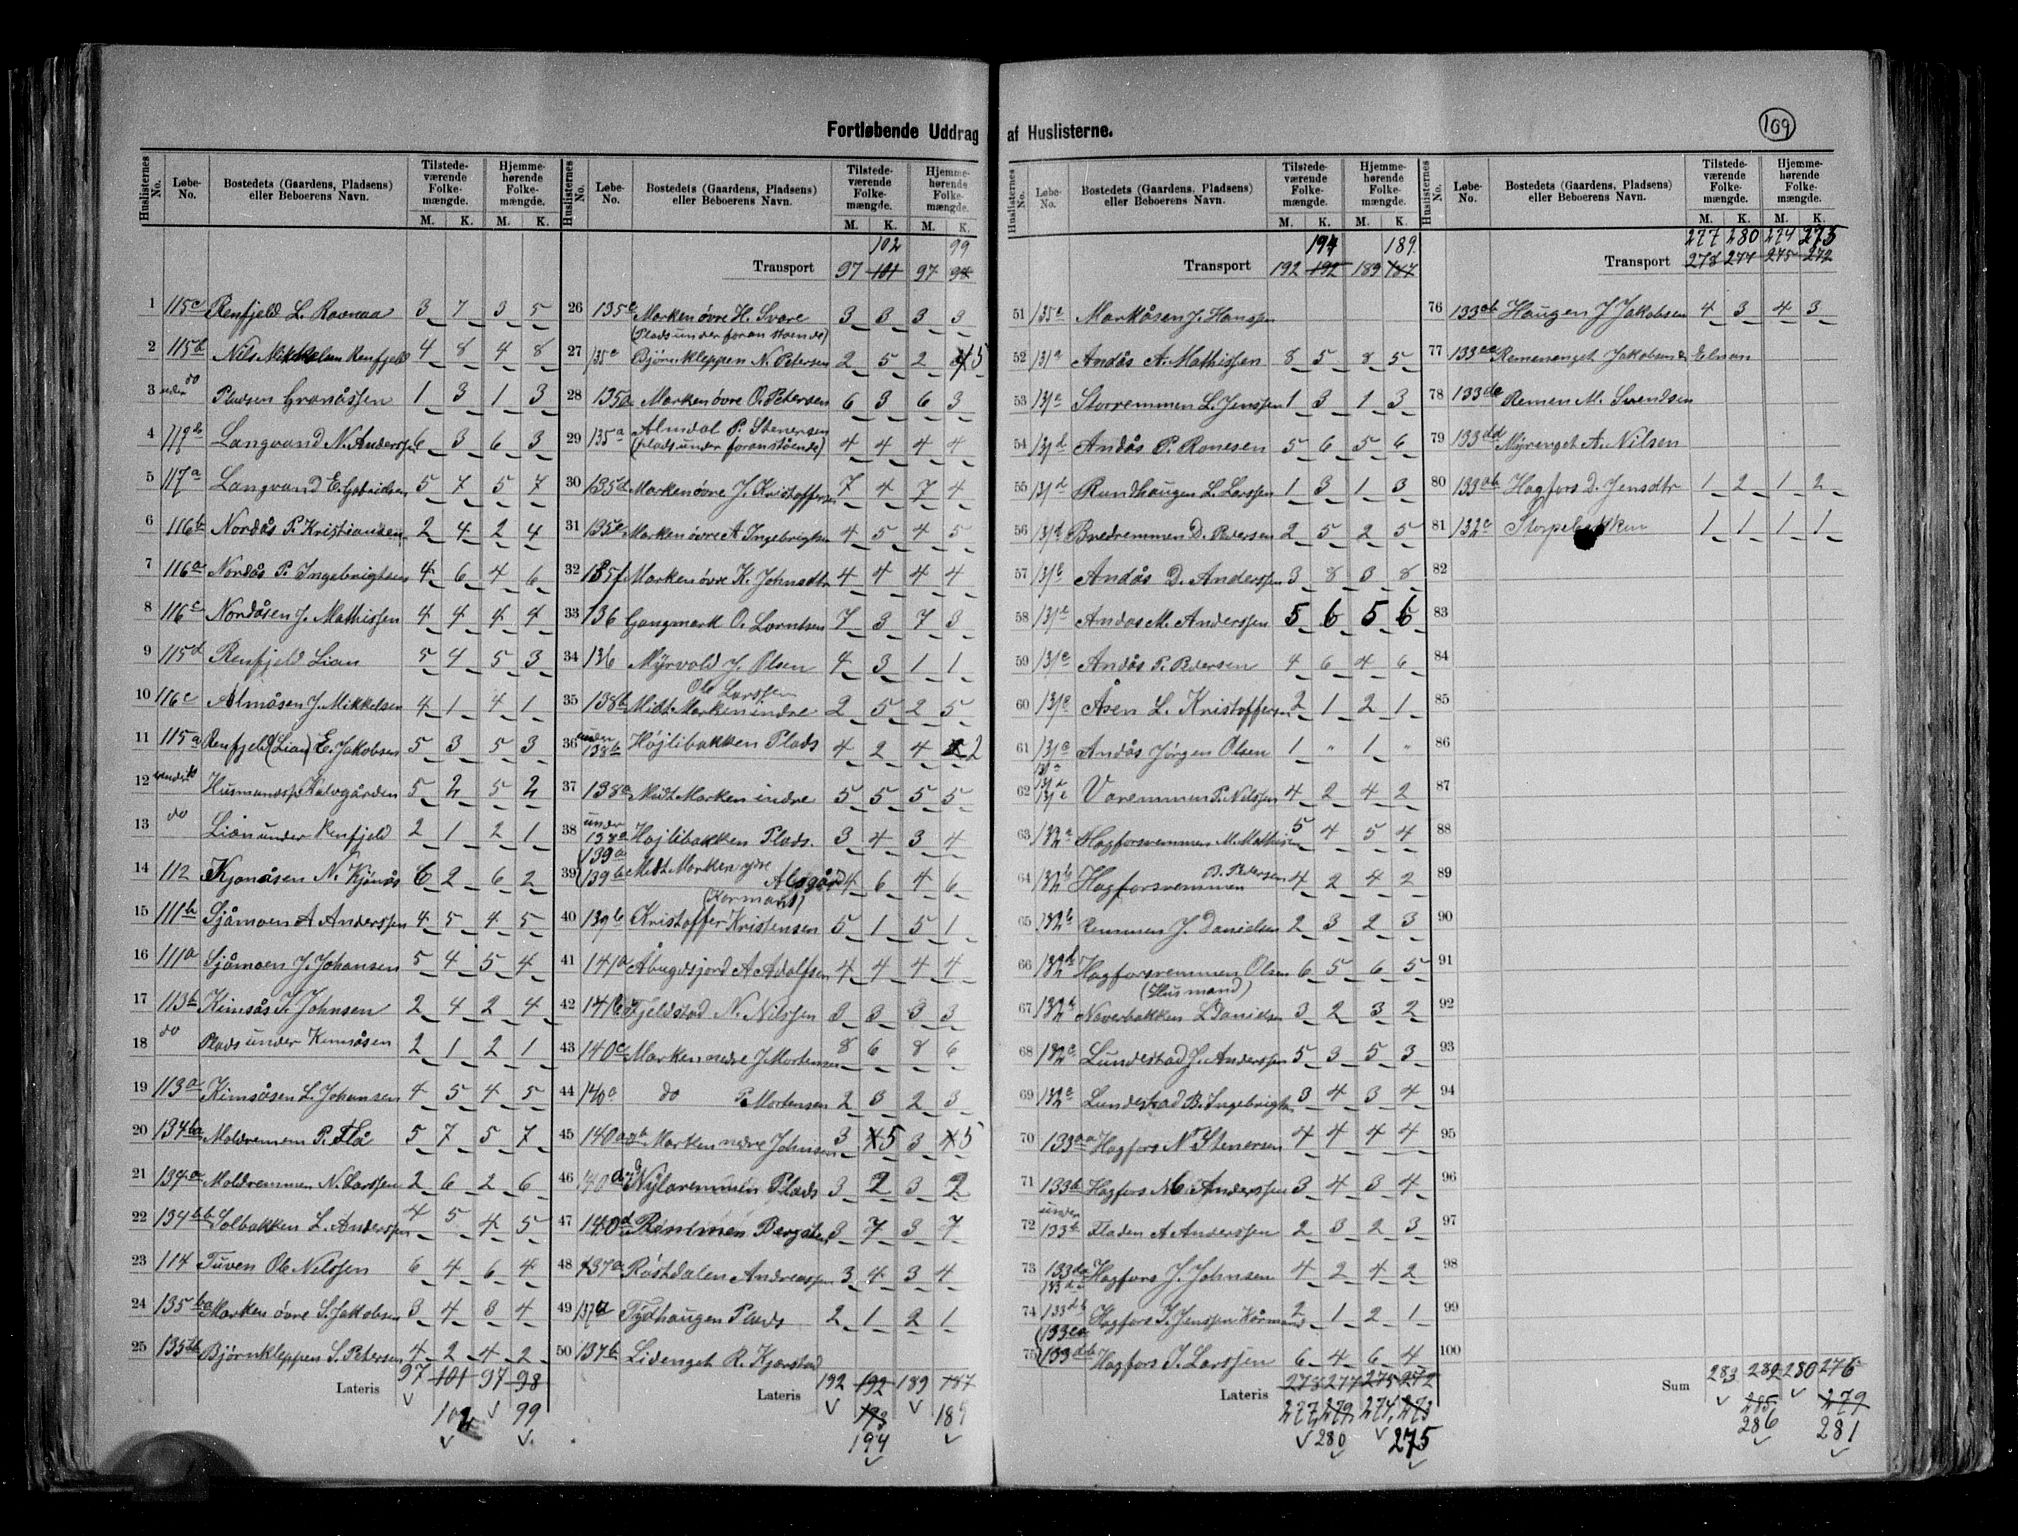 Fortløbende Uddrag af Huslisterne.
109
Huslisternes No. Løbe-No. Bostedets (Gaardens, Pladsens) eller Beboerens Navn. Tilstedeværende Folkemængde. M. K. Hjemmehørende Folkemængde. M. K.
1 115c Renfjeld L. Ravnaa 3 7 3 5
2 115b Nils Mikkelsen Renfjeld 4 8 4 8
3 under do Pladsen Granåssen 1 3 1 3
4 117b Langvand N. Anderssen 6 3 6 3
5 117a Langvand E. Gabrielsen 5 7 5 7
6 116b Nordås P. Kristiansen 2 4 2 4
7 116a Nordås P. Ingebrigtsen 4 6 4 6
8 116c Nordåsen J. Mathissen 4 4 4 4
9 115d Renfjeld Lian 5 4 5 3
10 116c Almåsen J. Mikkelsen 4 1 4 1
11 115a Renfjeld (Lian) E. Jakobsen 5 3 5 3
12 Husmandspl. Kalvgården 5 2 5 2
13 do Lian under Renfjeld 2 1 2 1
14 112 Kjønåsen N. Kjønås 6 2 6 2
15 111b Sjåmoen A Anderssen 4 5 4 5
16 111a Sjåmoen J. Johansen 5 4 5 4
17 113b Kimsås J. Johnsen 2 4 2 4
18 do Plads under Kimsåsen 2 1 2 1
19 113a Kimsåsen L. Johansen 4 5 4 5
20 134ba Moldremem P. Flå 5 7 5 7
21 134a Moldremmen N. Larssen 2 6 2 6
22 134bb Solbakken L. Anderssen 4 5 4 5
23 114 Tuven Ole Nilssen 6 4 6 4
24 135ba Marken øvre S. Jakobsen 3 4 3 4
25 135bb Bjørnkleppen S. Petersen 4 2 4 2
Lateris 97 101 97 98
102 99
Huslisternes No. Løbe-No. Bostedets (Gaardens, Pladsens) eller Beboerens Navn. Tilstedeværende Folkemængde. M. K. Hjemmehørende Folkemængde. M. K.
102 99
Transport 97 101 97 98
26 135c Marken øvre H. Svare 3 3 3 3
(Plads under foranstående)
27 135c Bjørnkleppen N. Petersen 2 5 2 5
28 135a Marken øvre O. Petersen 6 3 6 3
29 135a Almdal P. Stenersen 4 4 4 4
(plads under foranstående)
30 135d Marken øvre J. Kristoffersen 7 4 7 4
31 135e Marken øvre A Ingebrigtsen 4 5 4 5
32 135f Marken øvre K. Johnsdtr 4 4 4 4
33 136 Gangmark O. Lorntsen 7 3 7 3
34 136 Myrvold J. Olsen 4 3 1 1
Ole Larssen
35 138b Midt Marken indre 2 5 2 5
36 under 138b Højlibakken Plads 4 2 4 2
37 138a Midt Marken indre 5 5 5 5
38 under 138a Højlibakken Plads. 3 4 3 4
39 139a 139b Midt Marken ydre Alsgård 4 6 4 6
(Kormand)
40 139b Kristoffer Kristensen 5 1 5 1
41 141a Åbygdsjord A Adolfsen 4 4 4 4
42 141b Fjeldstad N. Nilssen 3 3 3 3
43 140c Marken nedre J. Mortensen 8 6 8 6
44 140a do P. Mortensen 2 3 2 3
45 140ab Marken nedre Johnsen 3 5 3 5
46 140a Nylaremmen Plads 3 2 3 2
47 140d Remmen Bergitten 3 7 3 7
48 137a Røstdalen Andreassen 3 4 3 4
49 137a Tydhaugen Plads 2 1 2 1
50 137b Lidenget R. Kjørstad
Lateris 192 192 189 187
193 189
194
Huslisternes No. Løbe-No. Bostedets (Gaardens, Pladsens) eller Beboerens Navn. Tilstedeværende Folkemængde. M. K. Hjemmehørende Folkemængde. M. K.
194 189
Transport 192 192 189 187
51 135c Markåsen J. Hanssen
52 131a Andås A. Mathissen 8 5 8 5
53 131a Storremmen L. Jenssen 1 3 1 3
54 131d Andås P. Ronesen 5 6 5 6
55 131d Rundhaugen L. Larssen 1 3 1 3
56 131d Bredremmen D. Pedersen 2 5 2 5
57 131b Andås D. Anderssen 3 8 3 8
58 131c Andas M. Anderssen 5 6 5 6
59 131e Andås P. Pedersen 4 6 4 6
60 131e Åsen L. Kristoffersen 2 1 2 1
61 131a Andås Jørgen Olsen 1 " 1 "
62 131a 131d 131e Voremmen P. Nilssen 4 2 4 2
63 132a Hagforsremmen M. Mathisen 5 4 5 4
64 132b Hagforsremmen B. Pedersen 4 2 4 2
65 132b Remmen J. Danielsen 2 3 2 3
66 132d Hagforsremmen Olsen 6 5 6 5
(Husmand)
67 132a Naverbakken L Danielsen 3 2 3 2
68 132a Lundestad J. Anderssen 5 3 5 3
69 132a Lundestad B. Ingebrigtsn 3 4 3 4
70 133aa Hagfors N. Stenersen 4 4 4 4
71 133b Hagfors M. Anderssen 3 4 3 4
72 under 133b Fladen A Anderssen 2 3 2 3
73 133da 133dc Hagfors J. Johnsen 4 2 4 2
74 133db Hagfors J. Jenssen Kårmand 2 1 2 1
75 133ca 133db Hagfors J. Larssen 6 4 6 4
Lateris 278 277 275 272
277 279 274 273
280 275
Huslisternes No. Løbe-No. Bostedets (Gaardens, Pladsens) eller Beboerens Navn. Tilstedeværende Folkemængde. M. K. Hjemmehørende Folkemængde. M. K.
277 280 274 275
Transport 278 277 275 272
76 133ab Haugen J Jakobsen 4 3 4 3
77 133ca Remenenget Jakobsen
78 133dc Remen M. Svendsen
79 133dd Myrenget A. Nilsen
80 133ab Hagfors D. Jensdtr 1 2 1 2
81 132c Storpebakken 1 1 1 1
82
83
84
85
86
87
88
89
90
91
92
93
94
95
96
97
98
99
100
Sum 283 282 280 276
285 279
286 281